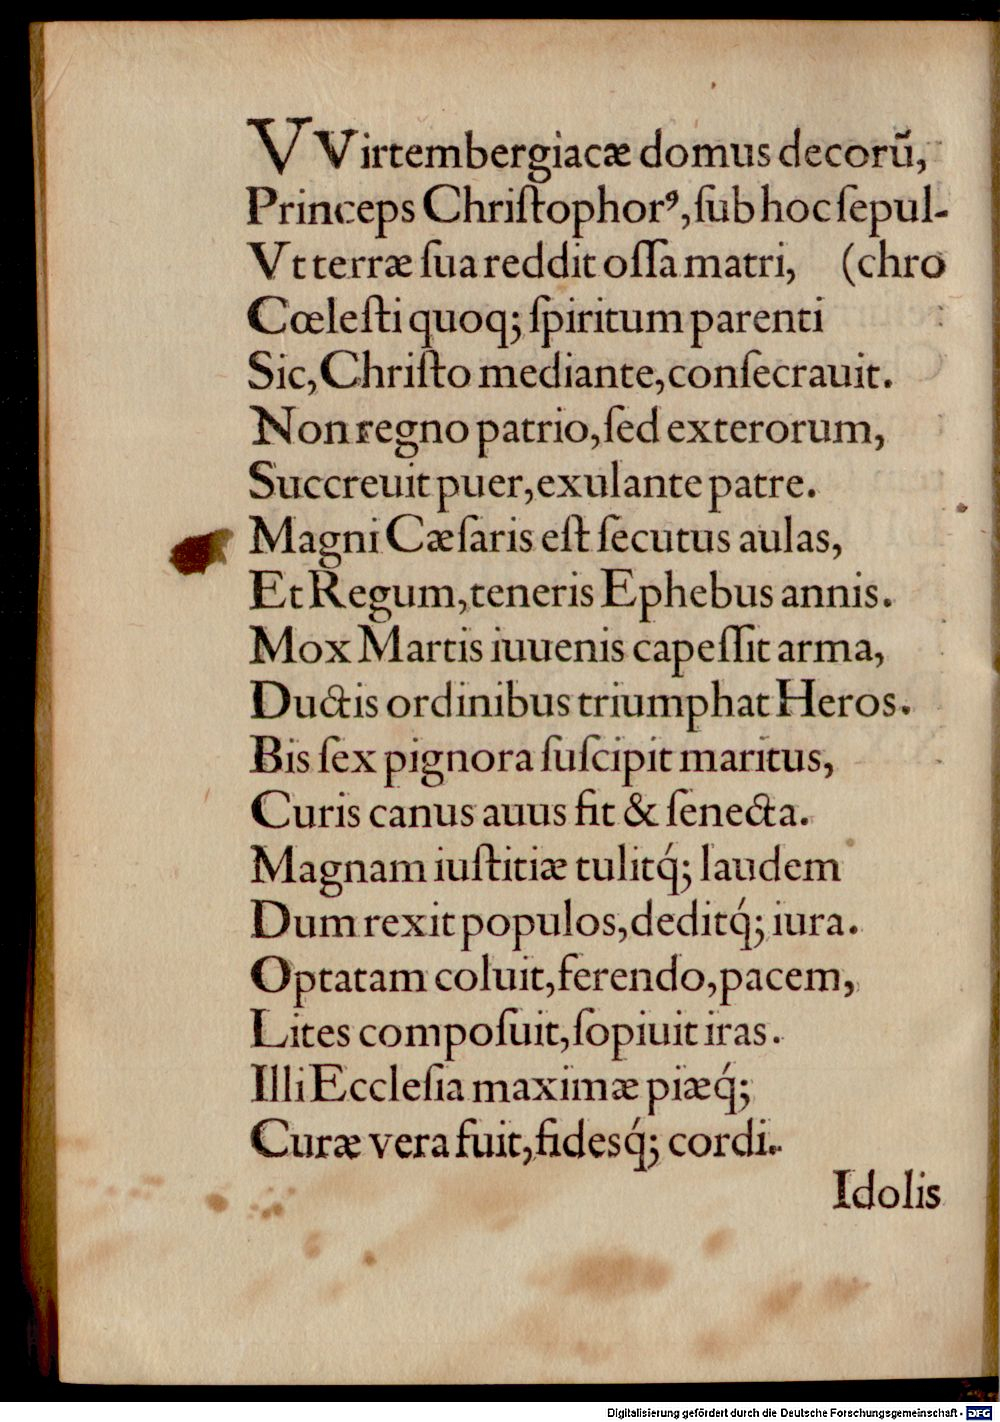 VVirtembergiacæ domus decorũ,
Princeps Chriſtophorꝰ, ſub hoc ſepul-
Vt terræ ſua reddit oſſa matri, (chro
Cœleſti quoq; ſpiritum parenti
Sic, Chriſto mediante, conſecrauit.
Non regno patrio, ſed exterorum,
Succreuit puer, exulante patre.
Magni Cæſaris eſt ſecutus aulas,
Et Regum, teneris Ephebus annis.
Mox Martis iuuenis capeſſit arma,
Ductis ordinibus triumphat Heros.
Bis ſex pignora ſuſcipit maritus,
Curis canus auus fit & ſenecta.
Magnam iuſtitiæ tulitq́; laudem
Dum rexit populos, deditq́; iura.
Optatam coluit, ferendo, pacem,
Lites compoſuit, ſopiuit iras.
Illi Eccleſia maximæ piæq́;
Curæ vera fuit, fidesq́; cordi.
Idolis
Digitalisierung gefördert durch die Deutsche Forschungsgemeinschaft - DFG